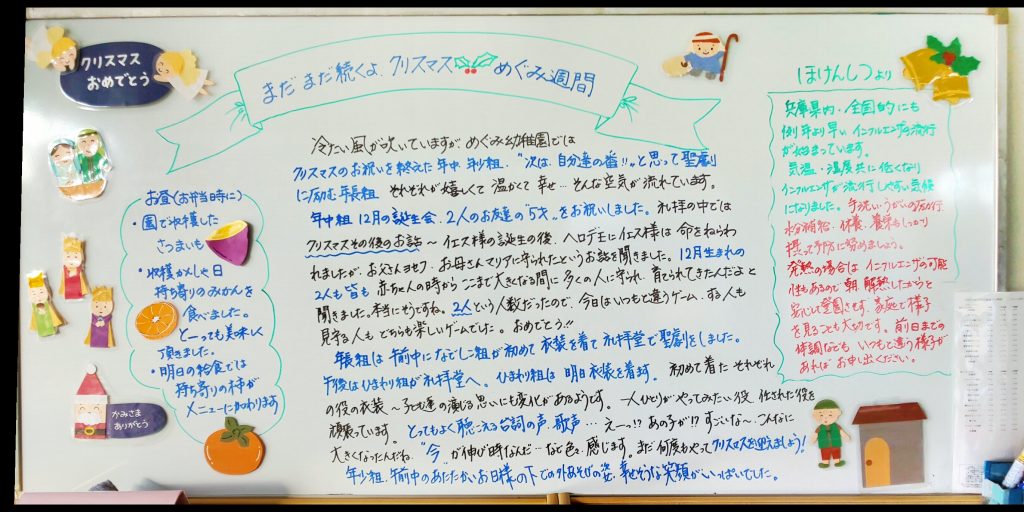 クリスマス
おめでとう
まだまだ続くよ クリスマス めぐみ週間
冷たい風が吹いていますが めぐみ幼稚園では
クリスマスのお祝いを終えた年中 年少組、"次は、自分達の番!!"と思って聖劇
に励む年長組 それぞれが嬉しくて 温かくて 幸せ… そんな空気が流れています。
年中組 12月の誕生会、2人のお友達の"5才"をお祝いしました。礼拝の中では
クリスマスその後のお話～イエス様の誕生の後、ヘロデ王にイエス様は 命をねらわ
れましたが、お父さんヨセフ、お母さんマリアに守られたというお話を聞きました。12月生まれの
2人も皆も 赤ちゃんの時から ここまで大きくなる間に 多くの人に守られ 育てられてきたんだよと
聞きました。本当にそうですね。2人という人数だったので、今日はいつもと違うゲーム、する人も
見守る人も どちらも楽しいゲームでした。おめでとう!!
年長組は 午前中になでしこ組が初めて 衣装を着て 礼拝堂で聖劇をしました。
午後はひまわり組が礼拝堂へ。ひまわり組は 明日衣装を着ます。初めて着た それぞれ
の役の衣装～子ども達の演じる思いにも変化があるようです。一人ひとりがやってみたい役 任された役を
頑張っています。とってもよく聴こえる台詞の声、歌声… えーっ!? あの子が!? すごいな～、こんなに
大きくなったんだね、"今"が伸び時なんだ…など色々感じます。まだ何度もやってクリスマスを迎えましょう!
年少組、午前中のあたたかいお日様の下での外あそびの姿、幸せそうな笑顔がいっぱいでした。
お昼(お弁当時に)
・園で収穫した
さつまいも
・収穫かんしゃ日
持ち寄りのみかんを
食べました。
とーっても美味しく
頂きました。
・明日の給食では
持ち寄りの柿が
メニューに加わります
かみさま
ありがとう
ほけんしつより
兵庫県内・全国的にも
例年より早い インフルエンザの流行
が始まっています。
気温・湿度共に低くなり
インフルエンザが流行しやすい気候
になりました。手洗いうがいの励行、
水分補給・休養・栄養もしっかり
摂って予防に努めましょう。
発熱の場合は インフルエンザの可能
性もあるので 朝、解熱したからと
安心して登園させず、家庭で様子
を見ることも大切です。前日までの
体調なども いつもと違う様子が
あれば お申し出ください。